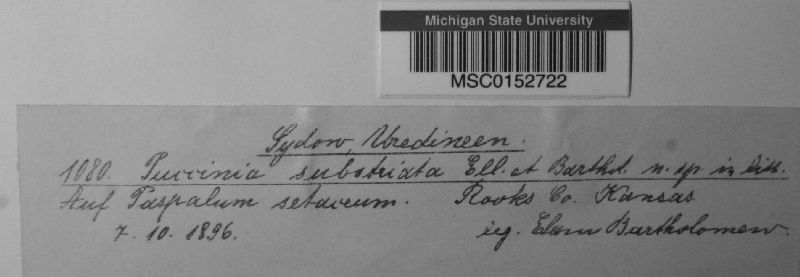 Michigan State University
MSC0152722
Sydow, Uredineen.
1080. Puccinia substriata Ell. et Barthol. n. sp. in litt.
Auf Paspalum setaceum. Rooks Co. Kansas
7. 10. 1896. leg. Elam Bartholomew.